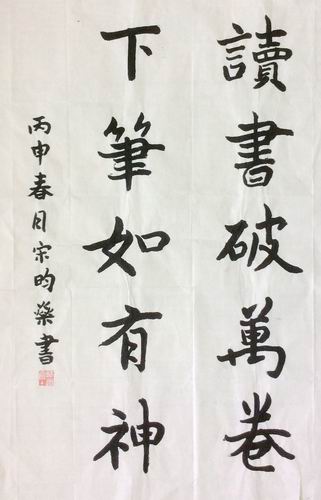 讀書破萬卷
下筆如有神
丙申春月宗昀燊書